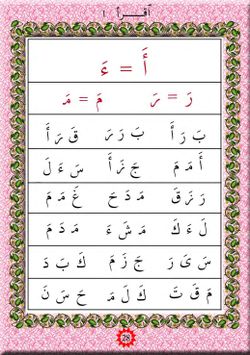 أقرأ ١
أَ = ءَ
رَ = رَ مَ = مَ
بَ رَ أَ بَ رَ رَ قَ رَ أَ
أَ مَ مَ جَ زَ أَ سَ ءَ لَ
رَ زَ قَ مَ دَ حَ غَ مَ مَ
لَ ءَ كَ مَ شَ ءَ مَ دَ مَ
سَ یَ رَ جَ زَ مَ كَ بَ دَ
مَ قَ تَ كَ لَ مَ حَ سَ نَ
28